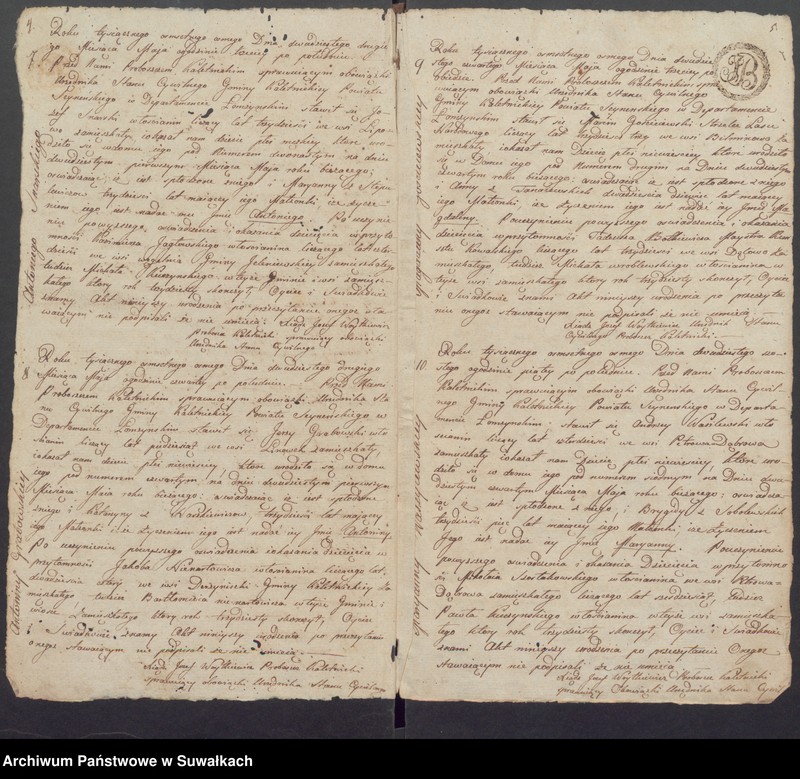 4.
7.
Antoniego Skarskiego
Roku tysiącznego osmsetnego osmego Dnia dwudziestego drugie
go Miesiąca Maja o godzinie trzeciey po południu.
Przed Nami Proboszczem Kaletnickim sprawuiącym obowiązki
Urzędnika Stanu Cywilnego Gminy Kaletnickiey Powiatu
Seynenskiego w Departamencie Łomzynskim stawił się Jó-
zef Skarski włoscianin liczący lat trzydziesci we wsi Lipo-
wo zamieszkały, i okazał nam dziecie płci męskiey ktore uro-
dziło się w domu iego pod Numerem dwunastym na dniu
dwudziestym pierwszym Miesiąca Maja roku bieżącego;
oswiadczaiąc iż iest spłodzone z niego i Maryanny z
trzydziesci lat maiącey iego Małżonki, iż życze-
niem iego iest nadać mu Jmię Antoniego. Po uczynie-
niu powyższego oswiadczenia i okazania dziecięcia w przyto-
mności Kazimierza Jagłowskiego włoscianina liczącego lat
we wsi Gminy Jeleniewskiey zamieszkałego
tudzież Michała w teyże Gminie i wsi zamiesz-
kałego ktory rok trzydziesty skonczył, Oyciec i Swiadkowie
znamy Akt ninieyszy urodzenia po przeczytaniu onego sta-
waiącym nie podpisali że nie umieią: Xiądz Jozef Woytkiewicz
Proboszcz Kaletnicki sprawuiący obowiązki
Urzędnika Stanu Cywilnego
8
Antoniny Grabowskiey
Roku tysiącznego osmsetnego osmego Dnia dwudziestego drugiego
Miesiąca Maja o godzinie czwartey po południu. Przed Nami
Proboszczem Kaletnickim sprawuiącym obowiązki Urzędnika Sta-
nu Cywilnego Gminy Kaletnickiey Powiatu Seynenskiego w
Departamencie Łomzynskim stawił się Jozef Grabowski wło-
scianin liczący lat we wsi zamieszkały,
i okazał nam dziecie płci niewieściey, ktore urodziło się w domu
iego pod numerem czwartym, na dniu dwudziestym pierwszym
Miesiąca Maia roku bieżącego; oswiadczaiąc iż iest spłodzone
z niego i Katarzyny z trzydziesci lat maiącey
iego Małżonki i iż życzeniem iego iest nadać iey Jmię Antoniny
Po uczynieniu powyższego oswiadczenia i okazania dziecięcia w
przytomności Jakoba włoscianina liczącego lat,
dwadziescia cztery we wsi Gminy Kaletnickiey za-
mieszkałego tudzież Bartłomieia w teyże Gminie i
wiosce zamieszkałego ktory rok trzydziesty skonczył, Oyciec
i Swiadkowie znamy Akt ninieyszy urodzenia po przeczytaniu
onego stawaiącym nie podpisali się nie umieią
Xiądz Jozef Woytkiewicz Proboszcz Kaletnicki
sprawuiący obowiązki Urzędnika Stanu Cywilnego
5.
9
Roku tysiącznego osmsetnego osmego Dnia dwudzie-
stego czwartego Miesiąca Maja o godzinie trzeciey po
obiedzie. Przed Nami Proboszczem Kaletnickim spra-
wuiącym obowiązki Urzędnika Stanu Cywilnego
Gminy Kaletnickiey Powiatu Seynenskiego w Departamencie
Łomzynskim stawił się Marcin Strzelec Lasu
Narodowego liczący lat trzydziesci trzy we wsi za-
mieszkały i okazał nam Dziecie płci niewieściey ktore urodziło
się w Domu iego pod Numerem drugim na Dniu dwudziestym
czwartym roku bieżącego, oswiadczaiąc iż iest spłodzone z niego
i Anny z dwadziescia dziewięć lat maiącey
iego Małżonki, iż życzeniem iego iest nadać iey Jmię Ma-
gdaleny. Po uczynieniu powyższego oswiadczenia i okazania
dziecięcia w przytomności Tadeusza Botkiewicza Maystra Kun-
sztu Kowalskiego liczącego lat trzydziesci we wsi za-
mieszkałego, tudzież Michała Wroblewskiego włoscianina w
teyże wsi zamieszkałego ktory rok trzydziesty skonczył, Oyciec
i Swiadkowie znami Akt ninieyszy urodzenia po przeczyta-
niu onego stawaiącym nie podpisali że nie umieią
Xiądz Jozef Woytkiewicz Urzędnik Stanu
Cywilnego Proboszcz Kaletnicki.
10
Maryanny Wasilewskiey
Roku tysiącznego osmsetnego osmego Dnia dwudziestego szo-
stego Miesiąca Maja o godzinie piątey po południu. Przed Nami Proboszczem
Kaletnickim sprawuiącym obowiązki Urzędnika Stanu Cywil-
nego Gminy Kaletnickiey Powiatu Seynenskiego w Departa-
mencie Łomzynskim, stawił się Andrzey Wasilewski wło-
scianin liczący lat we wsi Piotrowa Dąbrowa
zamieszkały i okazał nam Dziecie płci niewieściey, ktore uro-
dziło się w domu iego pod numerem siodmym na Dniu dwu-
dziestym czwartym Miesiąca Maja roku bieżącego; oswiadcza-
iąc iż iest spłodzone z niego, i Brygidy z Sobolewskich
trzydziesci pięć lat maiącey iego Małżonki iż życzeniem
Jego iest nadać iey Jmię Maryanny. Po uczynieniu
powyższego oswiadczenia i okazania Dziecięcia w przytomno-
ści Mikołaia włoscianina we wsi Piotrowa-
Dąbrowa zamieszkałego liczącego lat siedziesiąt, tudzież
Pawła włoscianina w teyże wsi zamieszka-
łego ktory rok trzydziesty skonczył, Oyciec i Swiadkowie
znami Akt ninieyszy urodzenia po przeczytaniu Onego
stawaiącym nie podpisali że nie umieią
Xiądz Jozef Woytkiewicz Proboszcz Kaletnicki
sprawuiący Obowiązki Urzędnika Stanu Cywil
Archiwum Państwowe w Suwałkach